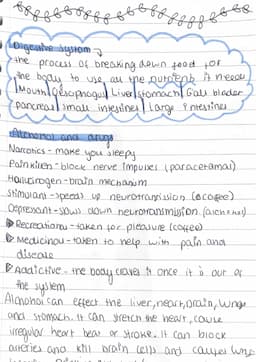 Digestive system
the process of breaking down food for
the body to use all the nutrients it needs
Mouth | Oesophagus | Liver | stomach | Gall bladder
pancreas | small intestines | large intestines
Alchohol and drugs
Narcotics - make you sleepy
Painkillers - block nerve impulses (paracetamal)
Hallucinogen - brain mechanism
Stimulant - speeds up neurotransmission (coffee)
Depressant - slows down neurotransmission (alchohol)
Recreational - taken for pleasure (coffee)
Medicinal - taken to help with pain and
disease
Addictive - the body craves it once it is out of
the system
Alchohol can effect the liver, heart, brain, lungs
and stomach. It can stretch the heart, cause
irregular heart beat or stroke. It can block
arteries and kill brain cells and causes lung